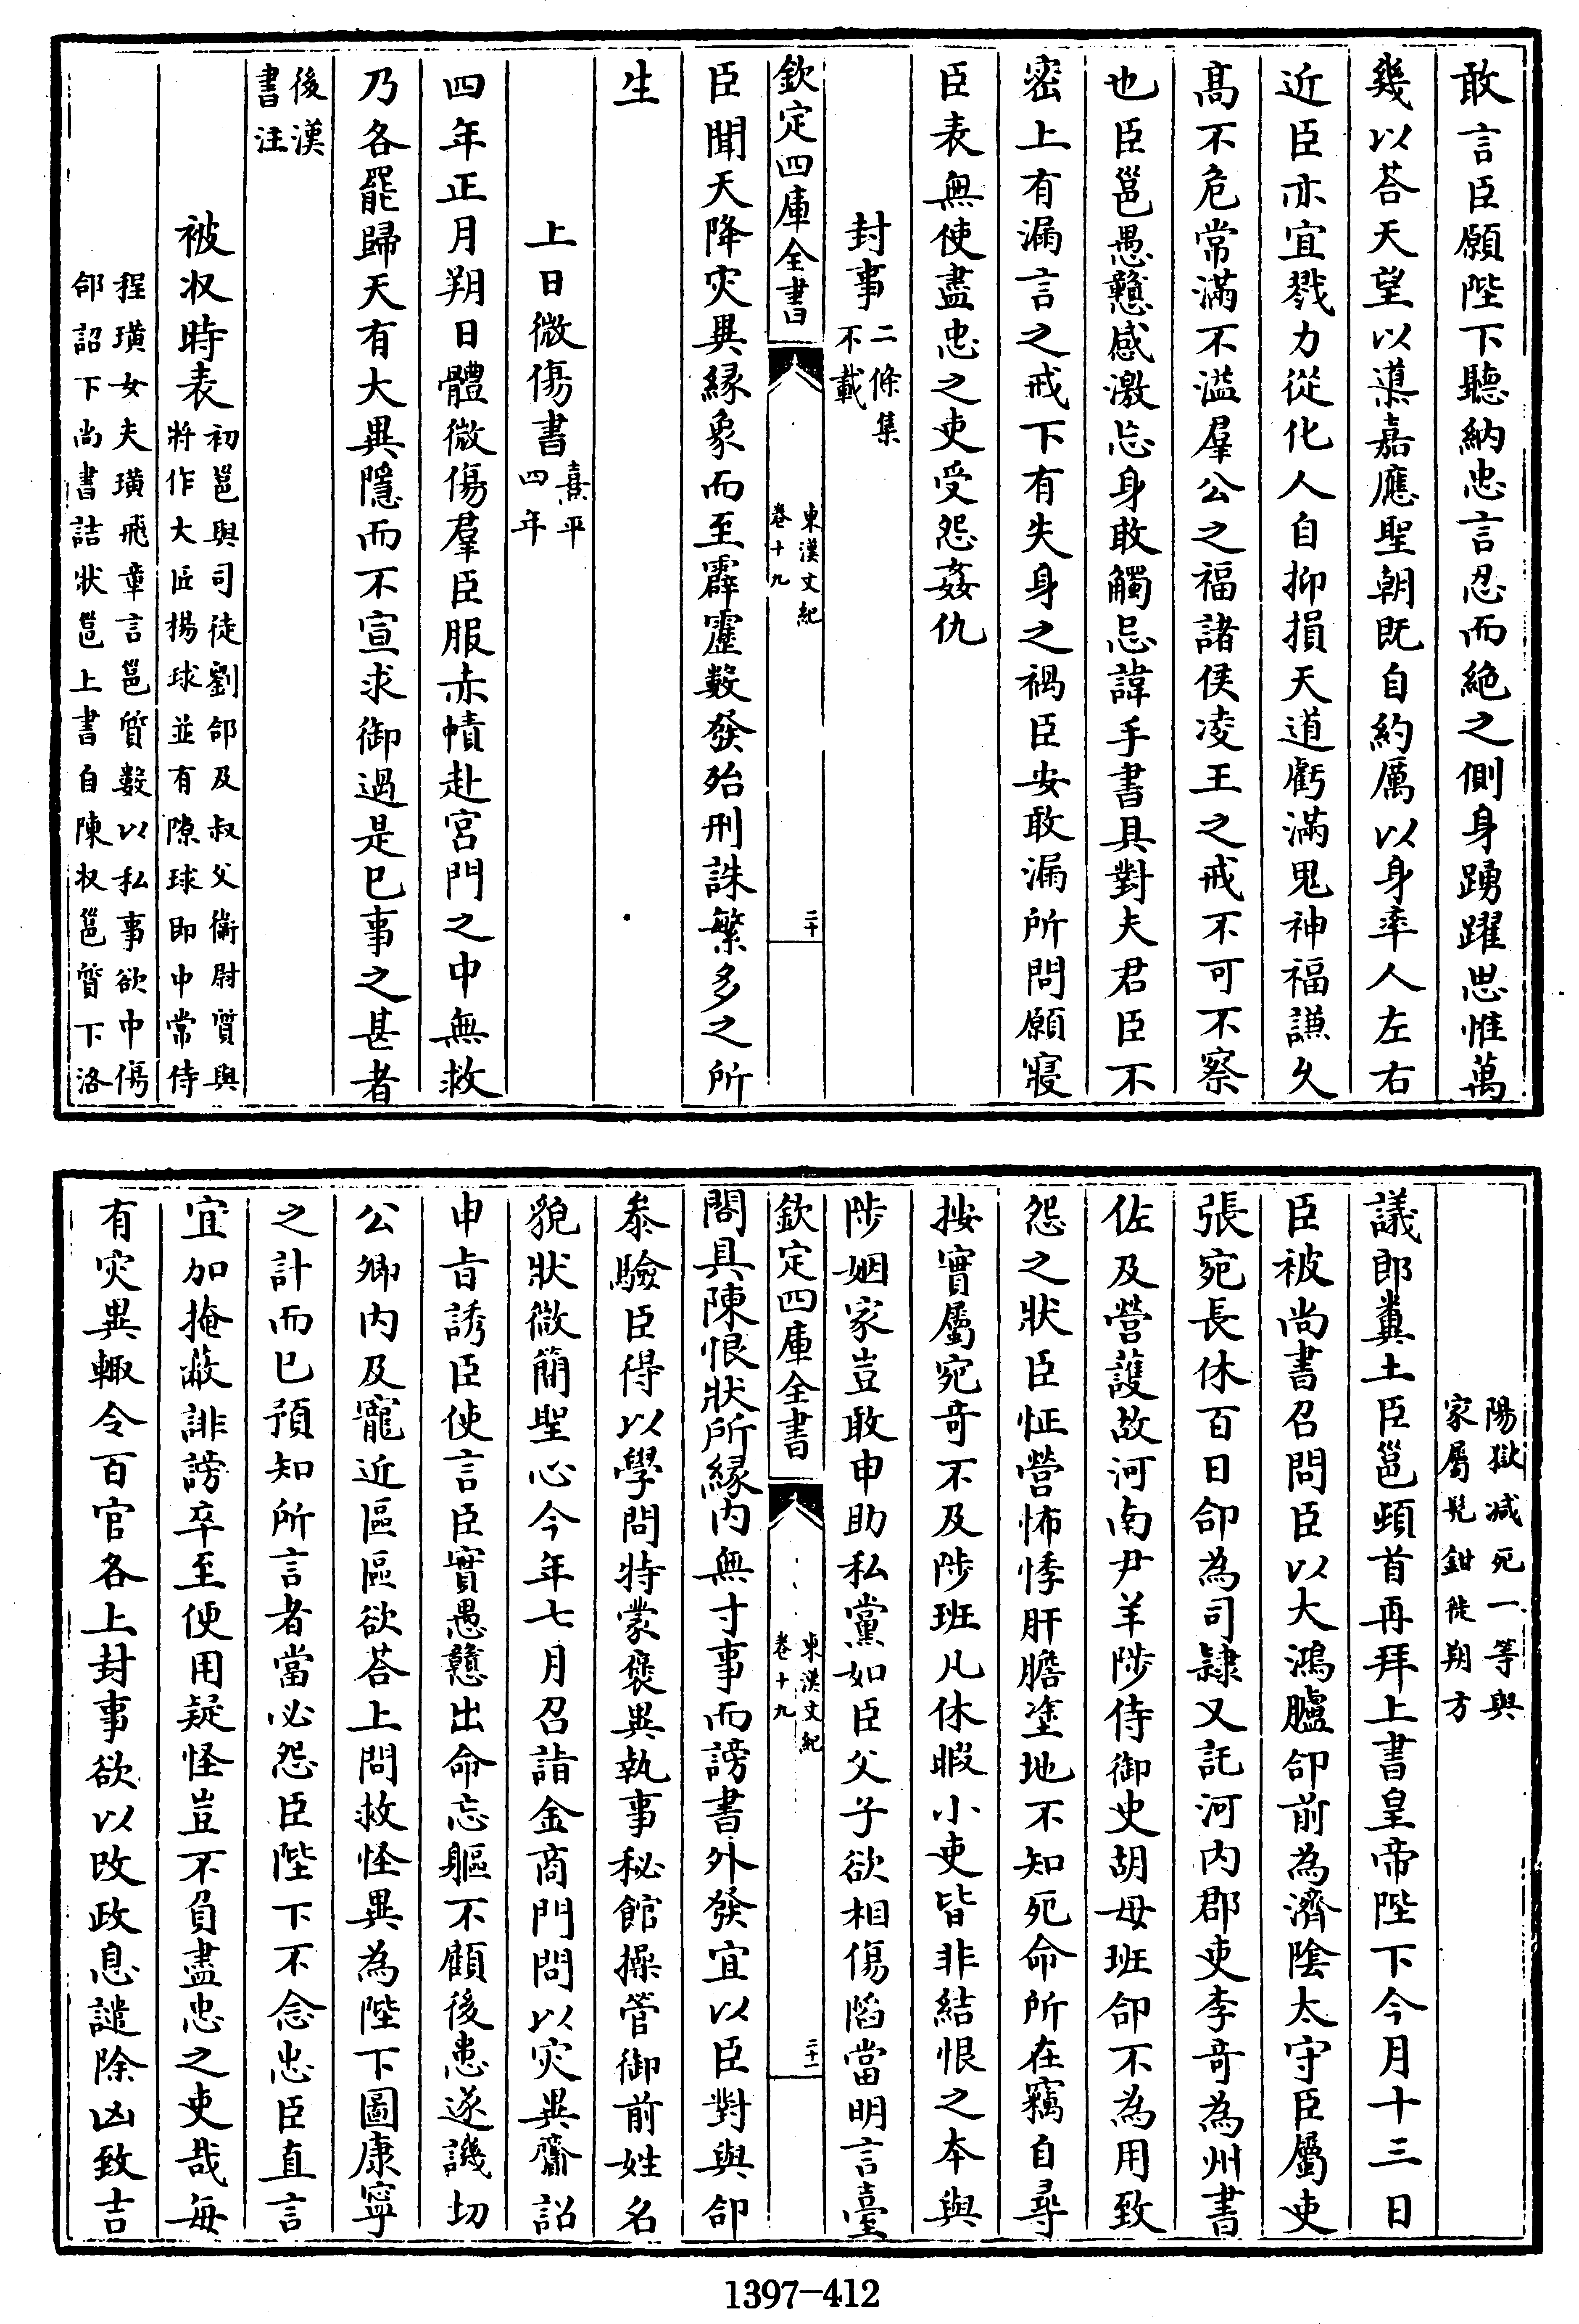 敢言臣願陛下聽納忠言忍而絶之側身踴躍思惟萬
幾以荅天望以導嘉應聖朝既自約厲以身率人左右
近臣亦宜戮力從化人自抑損天道虧滿鬼神福謙久
髙不危常滿不溢羣公之福諸侯凌王之戒不可不察
也臣邕愚戇感激忘身敢觸忌諱手書具對夫君臣不
密上有漏言之戒下有失身之禍臣安敢漏所問願寢
臣表無使盡忠之吏受怨姦仇
封事二條集不載
欽定四庫全書
東漢文紀
卷十九
二十
臣聞天降灾異縁象而至霹靂數發殆刑誅繁多之所
生
上日微傷書熹平四年
四年正月朔日體微傷羣臣服赤幘赴宮門之中無救
乃各罷歸天有大異隱而不宣求御過是已事之甚者
後漢書注
被收時表初邕與司徒劉郃及叔父衛尉質與
將作大匠楊球並有隙球即中常侍
程璜女夫璜飛章言邕質數以私事欲中傷
郃詔下尚書詰狀邕上書自陳收邕質下洛
陽獄減死一等與
家屬髠鉗徙朔方
議郎糞土臣邕頓首再拜上書皇帝陛下今月十三日
臣被尚書召問臣以大鴻臚郃前為濟隂太守臣屬吏
張宛長休百日郃為司隷又託河内郡吏李竒為州書
佐及營護故河南尹羊陟侍御史胡母班郃不為用致
怨之狀臣怔營怖悸肝膽塗地不知死命所在竊自尋
按實屬宛竒不及陟班凡休暇小吏皆非結恨之本與
陟姻家豈敢申助私黨如臣父子欲相傷陷當明言臺
欽定四庫全書
東漢文紀
卷十九
二十一
閣具陳恨狀所縁内無寸事而謗書外發宜以臣對與郃
叅驗臣得以學問特蒙褒異執事秘館操管御前姓名
貌狀微簡聖心今年七月召詣金商門問以灾異齎詔
申旨誘臣使言臣實愚戇出命忘軀不顧後患遂譏切
公卿内及寵近區區欲荅上問救怪異為陛下圖康寧
之計而已預知所言者當必怨臣陛下不念忠臣直言
宜加掩蔽誹謗卒至便用疑怪豈不負盡忠之吏哉每
有灾異輙令百官各上封事欲以改政息譴除凶致吉
1397-412